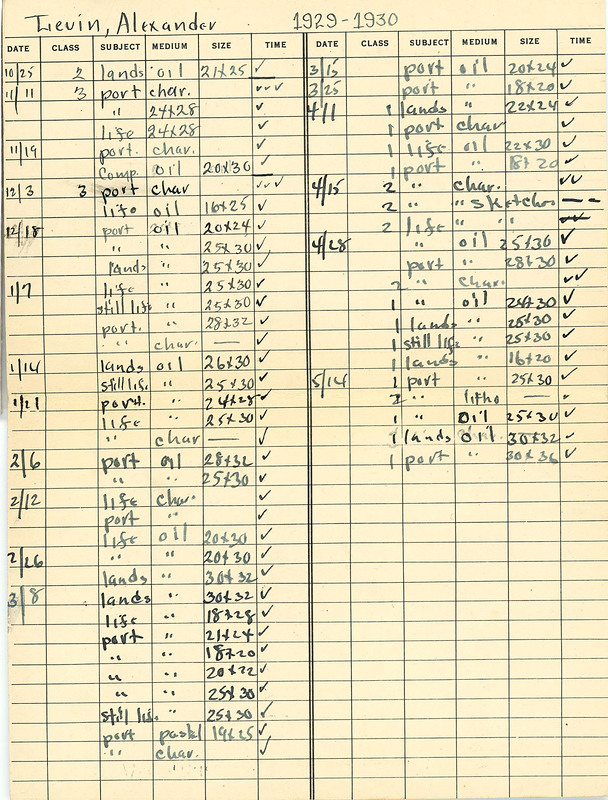 Levin, Alexander 1929-1930
DATE CLASS SUBJECT MEDIUM SIZE TIME
10/25 2 lands oil 21x25 ✓
11/11 3 port char. ✓✓✓
" 24x28 ✓
life 24x28 ✓
11/19 port. char. ✓
Comp. oil 20x30 ✓
12/3 3 port char ✓✓✓
life oil 16x25 ✓
12/18 port oil 20x24 ✓
" " 25x30 ✓
lands " 25x30 ✓
1/7 life " 25x30 ✓
still life " 25x30 ✓
port. " 28x32 ✓
" char. — ✓
1/14 lands oil 26x30 ✓
still life " 25x30 ✓
1/21 port. " 24x28 ✓
life " 25x30 ✓
" char — ✓
2/6 port oil 28x32 ✓
" " 25x30 ✓
2/12 life char. ✓
port " ✓
life oil 20x30 ✓
2/26 " " 20x30 ✓
lands " 30x32 ✓
3/8 lands " 30x32 ✓
life " 18x28 ✓
port " 21x24 ✓
" " 18x20 ✓
" " 20x22 ✓
" " 25x30 ✓
still lif. " 25x30 ✓
port pastel 19x25 ✓
" char. ✓
DATE CLASS SUBJECT MEDIUM SIZE TIME
3/15 port oil 20x24 ✓
3/25 port " 18x20 ✓
4/1 1 lands " 22x24 ✓
1 port char ✓
1 life oil 22x30 ✓
1 port " 18x20 ✓
4/15 2 " char. ✓✓
2 " " sketches — —
2 life " "
4/28 " oil 25x30 ✓
port " 28x30 ✓
2 " char. ✓✓
1 " oil 24x30 ✓
1 lands " 25x30 ✓
1 still life " 25x30 ✓
1 lands " 16x20 ✓
5/14 1 port " 25x30 ✓
2 " litho —
1 " oil 25x30 ✓
1 lands oil 30x32 ✓
1 port " 30x36 ✓